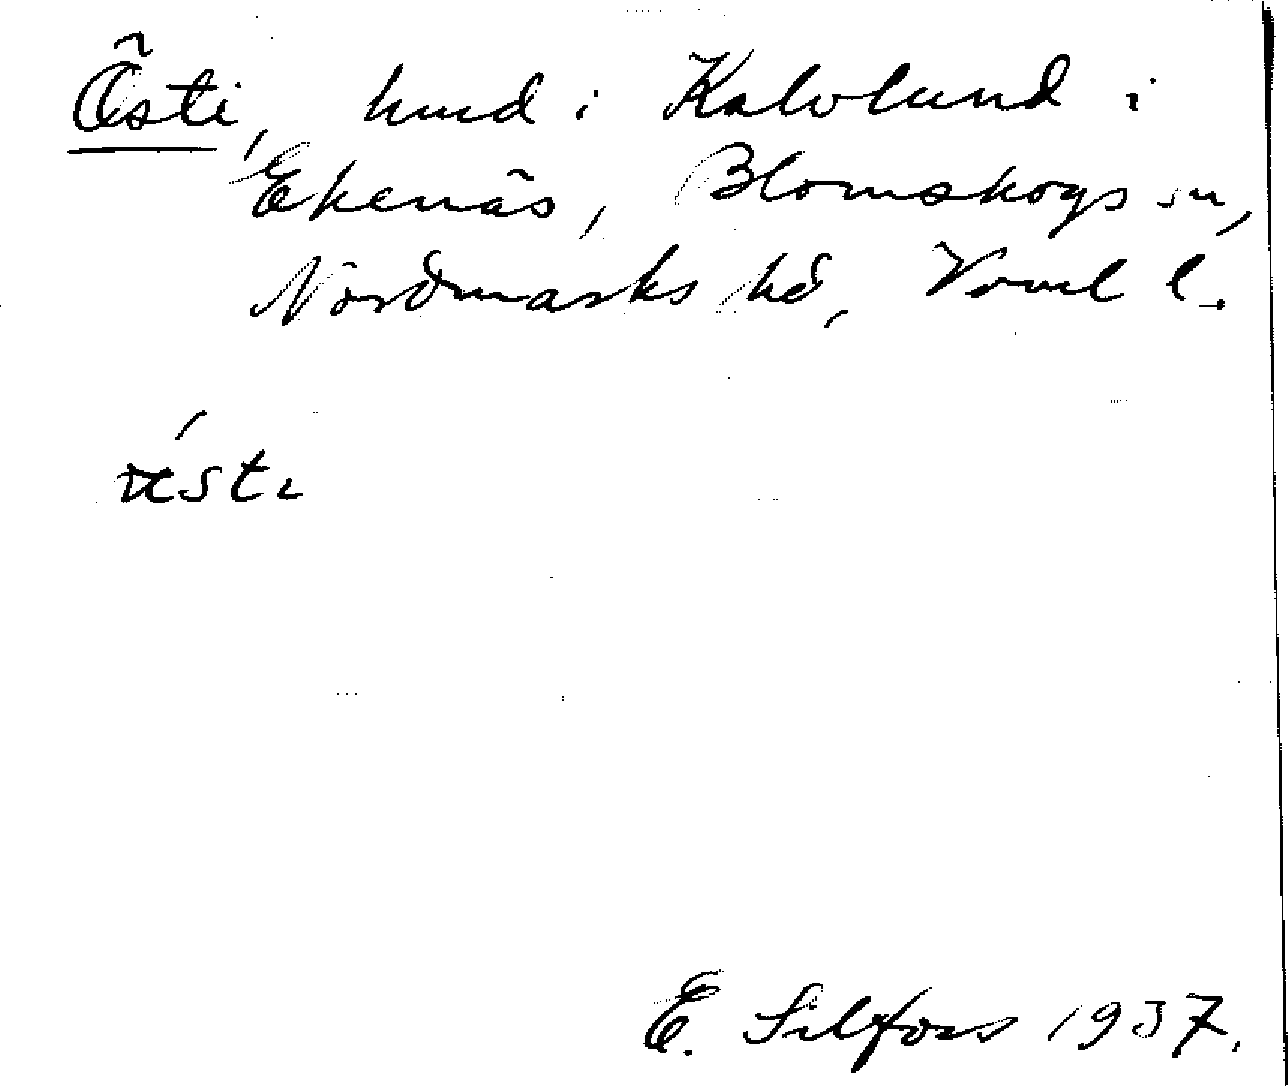 Östi, hund i Kalvlund i
Ekenäs, Blomskogs sn,
Nordmarks hd, Vrml l.
E. Silfors 1937.